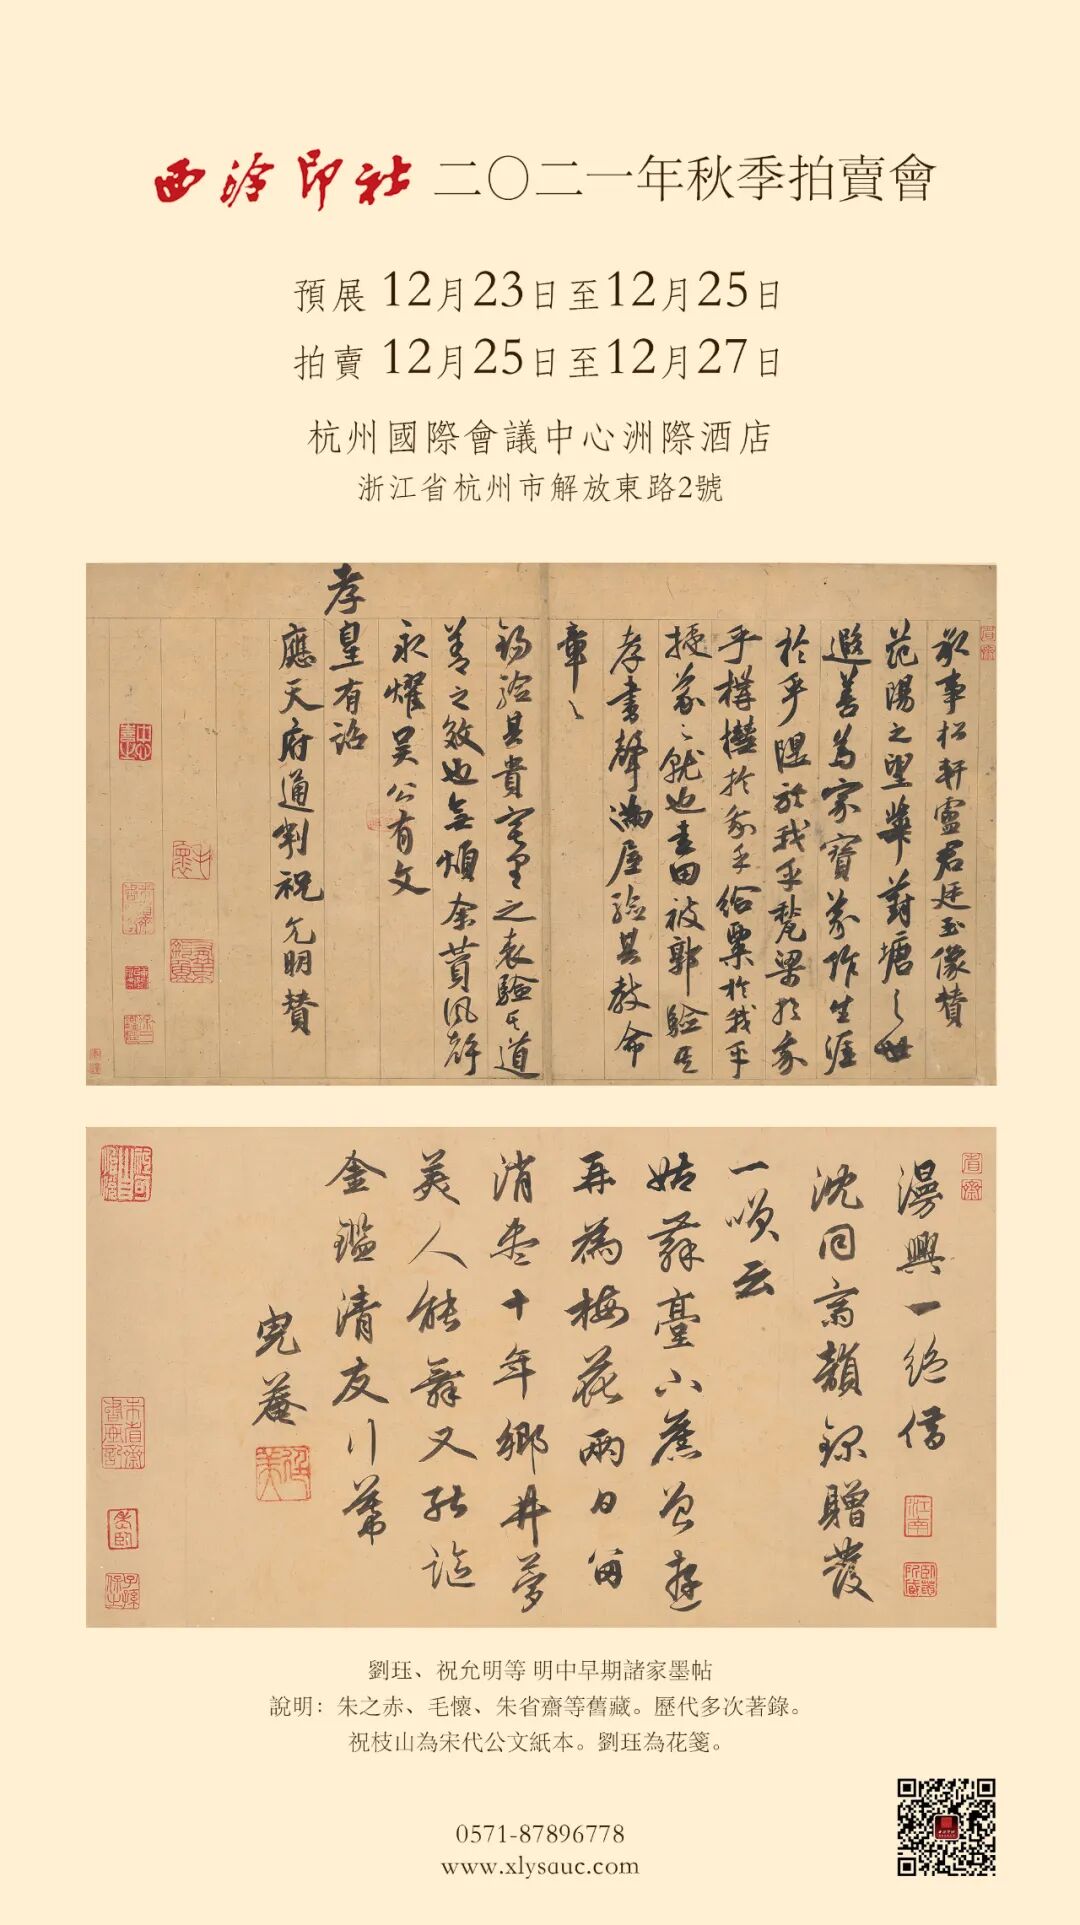 西泠印社 二〇二一年秋季拍賣會
預展 12月23日至12月25日
拍賣 12月25日至12月27日
杭州國際會議中心洲際酒店
浙江省杭州市解放東路2號
故事松軒盧君廷玉像贊
范陽之望華葑塘之世
遐善為家寶義作生涯
於乎隁於我乎甃梁於我
乎樽櫃於我乎給粟於我乎
捷義之就也書田被郭驗其
孝書聲滿屋驗其教命
章之
錫驗其貴宅里之表驗其道
善之效也無煩余贊風辭
永燿吳公有文
孝皇有詔
應天府通判祝允明贊
漫興一絕借
沈同齋韻錄贈發
一噗云
姑蘇臺下舊曾遊
再為梅花兩日留
消盡十年鄉井夢
美人能舞又能謳
金鑑清友行幕
完菴
劉珏、祝允明等 明中早期諸家墨帖
說明：朱之赤、毛懷、朱省齋等舊藏。歷代多次著錄。
祝枝山為宋代公文紙本。劉珏為花箋。
0571-87896778
www.xlysauc.com